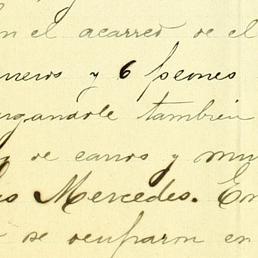 en el acarreo de el
neros y 6 peones
argandole también
de carros y mu
las Mercedes. En
se ocuparon en